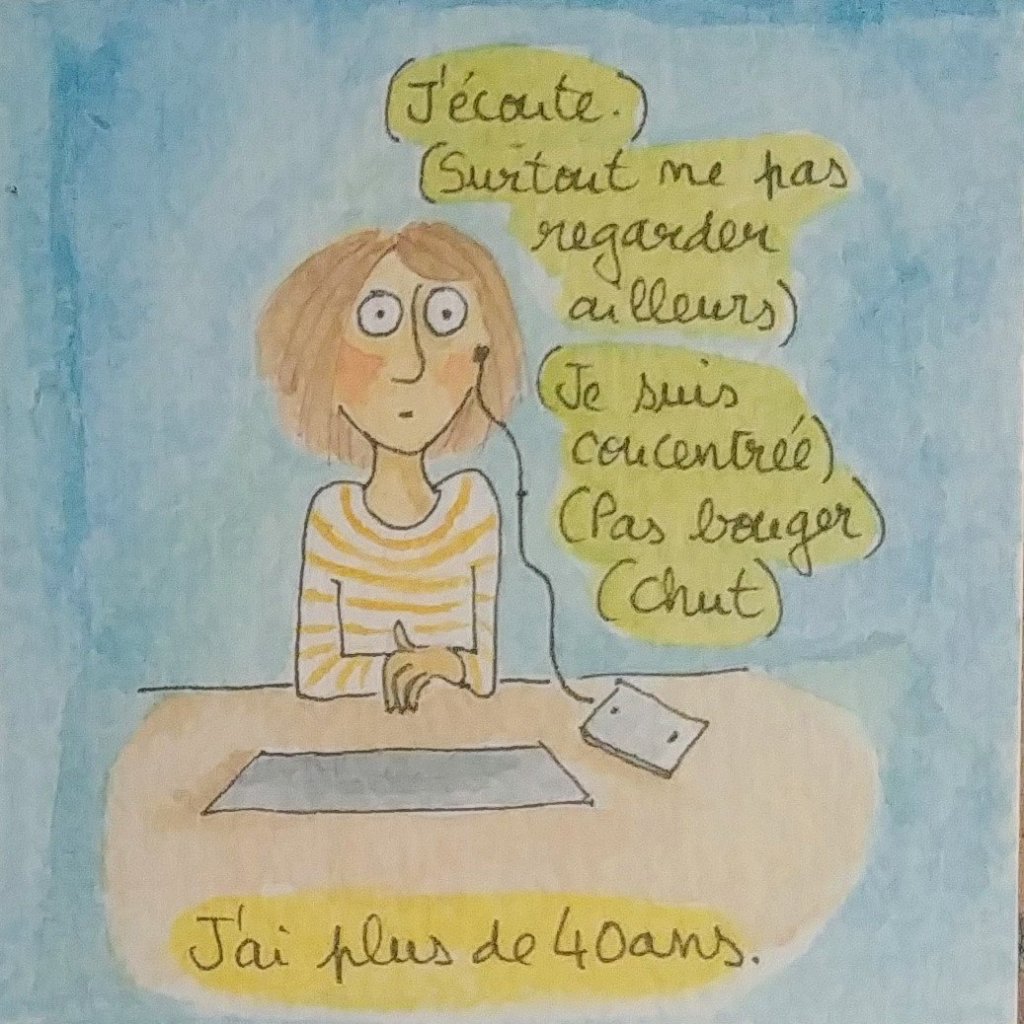 (J'écoute.)
(Surtout ne pas
regarder
ailleurs)
(Je suis
concentrée)
(Pas bouger)
(chut)
J'ai plus de 40ans.